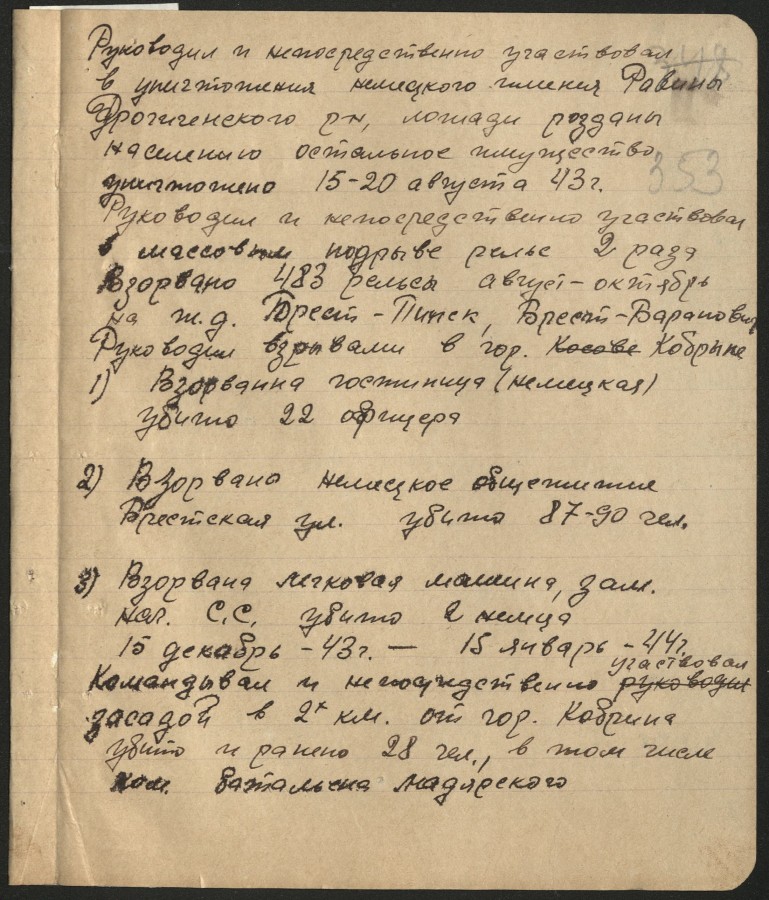 Руководил и непосредственно участвовал
в уничтожения немецкого имения Равины
Дрогиченского р-н, лошади розданы
населению остальное имущество
уничтожено 15-20 августа 43г.
353
Руководил и непосредственно участвовал
в массовым подрыве рельс 2 раза
Взорвано 483 рельсы август-октябрь
на ж.д. Брест-Пинск, Брест-Баранович
Руководил взрывами в гор. Косове Кобрыне
1) Взорванна гостиница (немецкая)
убито 22 офицера
2) Взорвано немецкое общежитие
Брестская ул. убито 87-90 чел.
3) Взорвана легковая машина, зам.
нач. С.С. убито 2 немца
15 декабрь -43г. — 15 январь -44г.
участвовал
Командывал и непосредственно руководил
засадой в 2х км. от гор. Кобрина
убито и ранено 28 чел., в том числе
ком. батальена мадярского